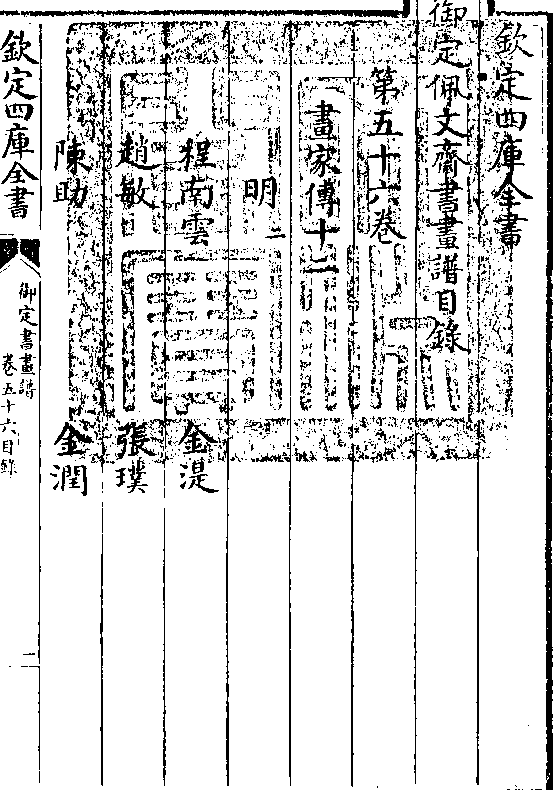 欽定四庫全書
御定佩文齋書畫譜目錄
第五十六卷
畫家傳十二
明二
程南雲 金湜
趙敏 張璞
陳助 金潤
欽定四庫全書
御定書畫譜
卷五十六目錄